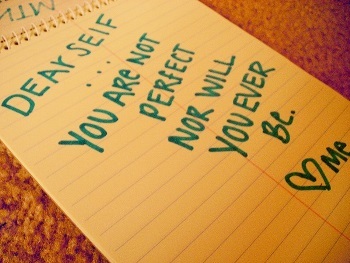 MTV
DEAR SELF
...
YOU ARE NOT
PERFECT
NOR WILL
YOU EVER
BE.
♡ Me